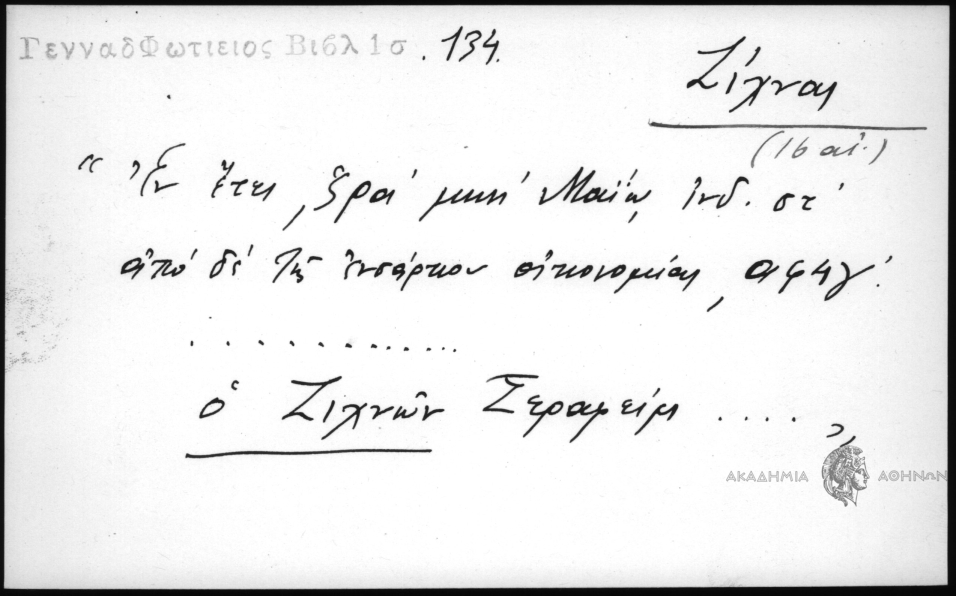 ΓενναδΦωτιειος Βιβλ 1σ .134.
Ζίχναι
(16 αἰ.)
“Ἐν ἔτει ͵ζραʹ μηνί Μαΐῳ, ἰνδ. στʹ
ἀπό δέ τῆς ἐνσάρκου οἰκονομίας ͵αφηγʹ.
..............
ὁ Ζιχνῶν Σεραφείμ ....”
ΑΚΑΔΗΜΙΑ ΑΘΗΝΩΝ